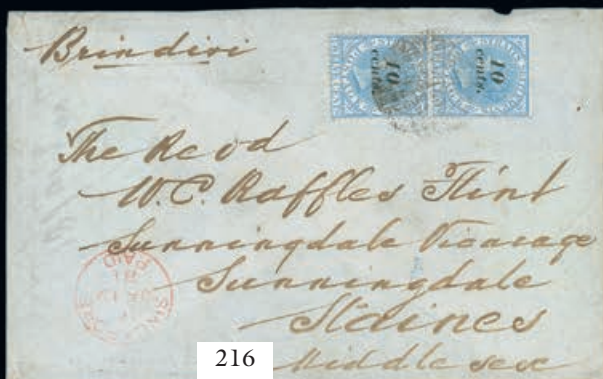 Brindisi
STRAITS
10 cents.
10 cents.
The Revd
W.C. Raffles Flint
Sunningdale Vicarage
Sunningdale
Staines
Middlesex
SINGAPORE
PAID
216